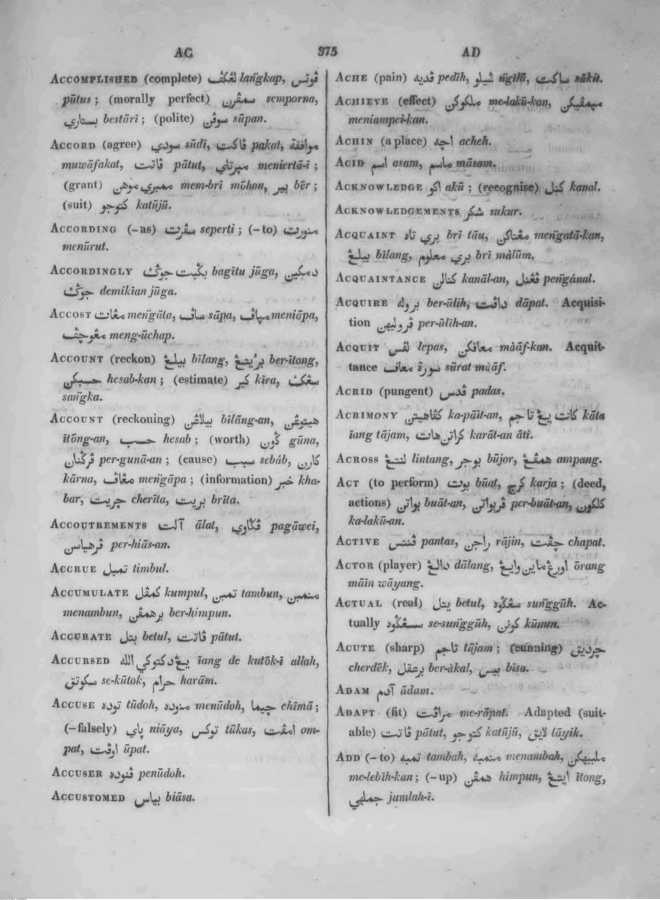 AC 375 AD
ACCOMPLISHED (complete) لڠكڤ lañgkap, ڤوتس
pūtus; (morally perfect) سمڤرن semporna,
بستاري bestāri; (polite) سوڤن sūpan.
ACCORD (agree) سودي sūdi, ڤاكت pakat, موافقة
muwāfakat, ڤاتت pātut, ميرتي meniertā-i;
(grant) ممبري موهن mem-brī mōhon, بير bēr;
(suit) كتوجو katūjū.
ACCORDING (-as) سڤرت seperti; (-to) منورت
menūrut.
ACCORDINGLY بڬيت جوڬ bagītu jūga, دمكين
جوڬ demikian jūga.
ACCOST مڠات meñgāta, ساڤ sāpa, مياڤ meniāpa,
مڠوچڤ meng-ūchap.
ACCOUNT (reckon) بيلڠ bīlang, برايتڠ ber-ītong,
حسبكن hesab-kan; (estimate) كير kira, سڠك
sañgka.
ACCOUNT (reckoning) بيلاڠن bīlāng-an, هيتوڠن
ītōng-an, حسب hesab; (worth) ڬون gūna,
ڤرڬنان per-gunā-an; (cause) سبب sebāb, كارن
kārna, مڠاڤ meñgāpa; (information) خبر kha-
bar, چريت cherīta, بريت brīta.
ACCOUTREMENTS آلت ālat, ڤڬاوي pagāwei,
ڤرهياسن per-hiās-an.
ACCRUE تمبل timbul.
ACCUMULATE كمڤل kumpul, تمبن tambun, منمبن
menambun, برهمڤن ber-himpun.
ACCURATE بتل betul, ڤاتت pātut.
ACCURSED يڠ دكتوكي الله īang de kutōk-ī allah,
سكوتق se-kūtok, حرام harām.
ACCUSE توده tūdoh, منوده menūdoh, چيما chīmā;
(-falsely) ياي niāya, توكس tūkas, امڤت om-
pat, اوڤت ūpat.
ACCUSER ڤنوده penūdoh.
ACCUSTOMED بياس biāsa.
ACHE (pain) ڤديه pedīh, ڠيلو ñgīlū, ساكت sākit.
ACHIEVE (effect) ملكوكن me-lakū-kan, ميمڤيكن
meniampei-kan.
ACHIN (a place) اچه acheh.
ACID اسم asam, ماسم māsam.
ACKNOWLEDGE اكو akū; (recognise) كنل kanal.
ACKNOWLEDGEMENTS شكر sukur.
ACQUAINT بري تاو brī tāu, مڠتاكن meñgatā-kan,
بيلڠ bīlang, بري معلوم brī mālūm.
ACQUAINTANCE كنالن kanāl-an, ڤڠنل peñgānal.
ACQUIRE بروله ber-ūlih, داڤت dāpat. Acquisi-
tion ڤروليهن per-ūlīh-an.
ACQUIT لڤس lepas, معافكن māāf-kan. Acquit-
tance سورة معاف sūrat māāf.
ACRID (pungent) ڤدس padas.
ACRIMONY كڤاهيتن ka-pāīt-an, كات يڠ تاجم kāta
īang tājam, كراتن هات karāt-an āti.
ACROSS لنتڠ lintang, بوجر būjor, همڤڠ ampang.
ACT (to perform) بوت būat, كرج karja; (deed,
actions) بواتن buāt-an, ڤربواتن per-buāt-an, كلكون
ka-lakū-an.
ACTIVE ڤنتس pantas, راجن rājin, چڤت chapat.
ACTOR (player) دالڠ dālang, اورڠ ماين وايڠ ōrang
māin wāyang.
ACTUAL (real) بتل betul, سڠڬوه suñggūh. Ac-
tually سسڠڬوه se-suñggūh, كونن kūnun.
ACUTE (sharp) تاجم tājam; (cunning) چرديق
cherdēk, برعقل ber-ākal, بيس bīsa.
ADAM آدم ādam.
ADAPT (fit) مراڤت me-rāpat. Adapted (suit-
able) ڤاتت pātut, كتوجو katūjū, لايق lāyik.
ADD (-to) تمبه tambah, منمبه menambah, ملبيهكن
me-lebīh-kan; (-up) همڤن himpun, ايتڠ ītong,
جملهي jumlah-ī.